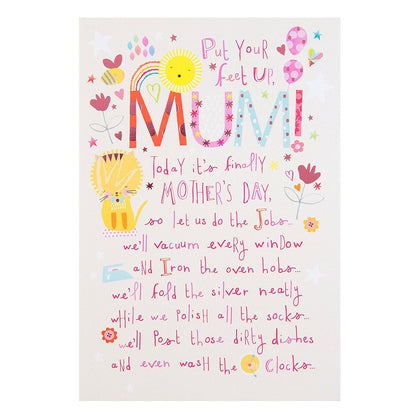 Put Your
feet up,
MUM!
Today it's finally
MOTHER'S DAY,
so let us do the Jobs...
we'll vacuum every window
and Iron the oven hobs...
we'll fold the silver neatly
while we polish all the socks...
we'll Post those dirty dishes
and even wash the Clocks...